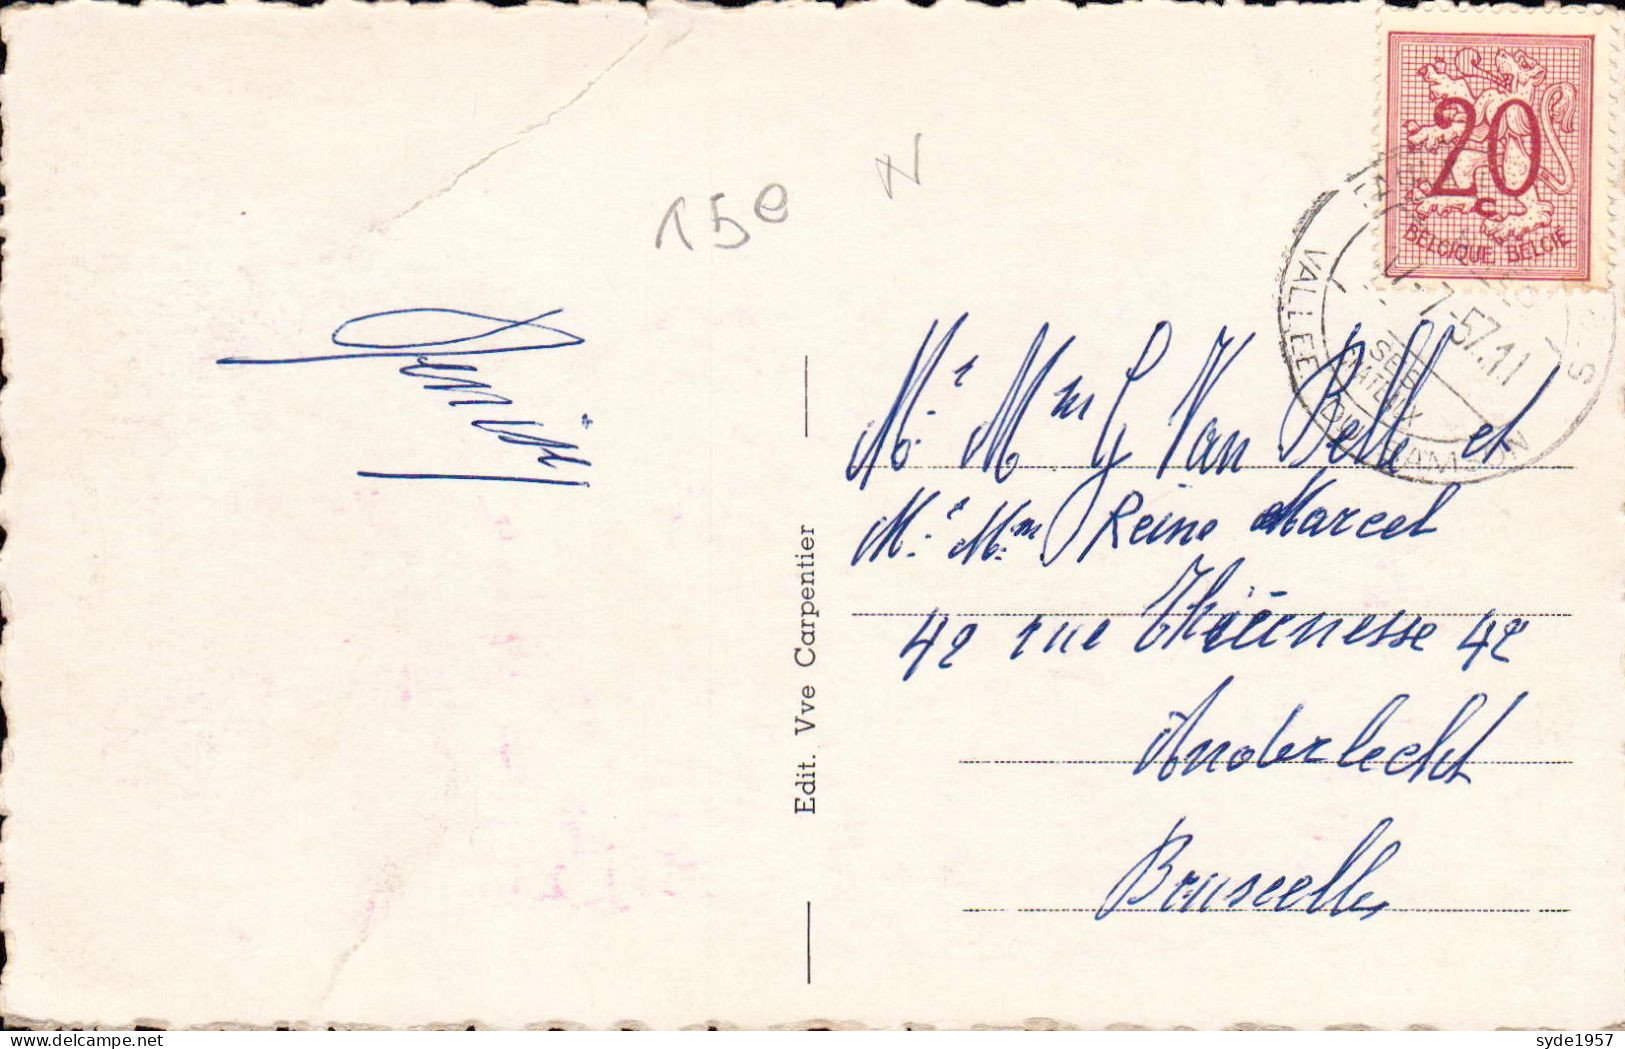 15e N
20
c
BELGIQUE BELGIË
VALLEE DU SAMSON
SES
CHATEAUX
7-57.11
Edit. Vve Carpentier
Mr Mm G Van Belle et
Mr Mm Reine Marcel
42 rue 42
Anderlecht
Bruxelles
syde1957
Delcampe.net